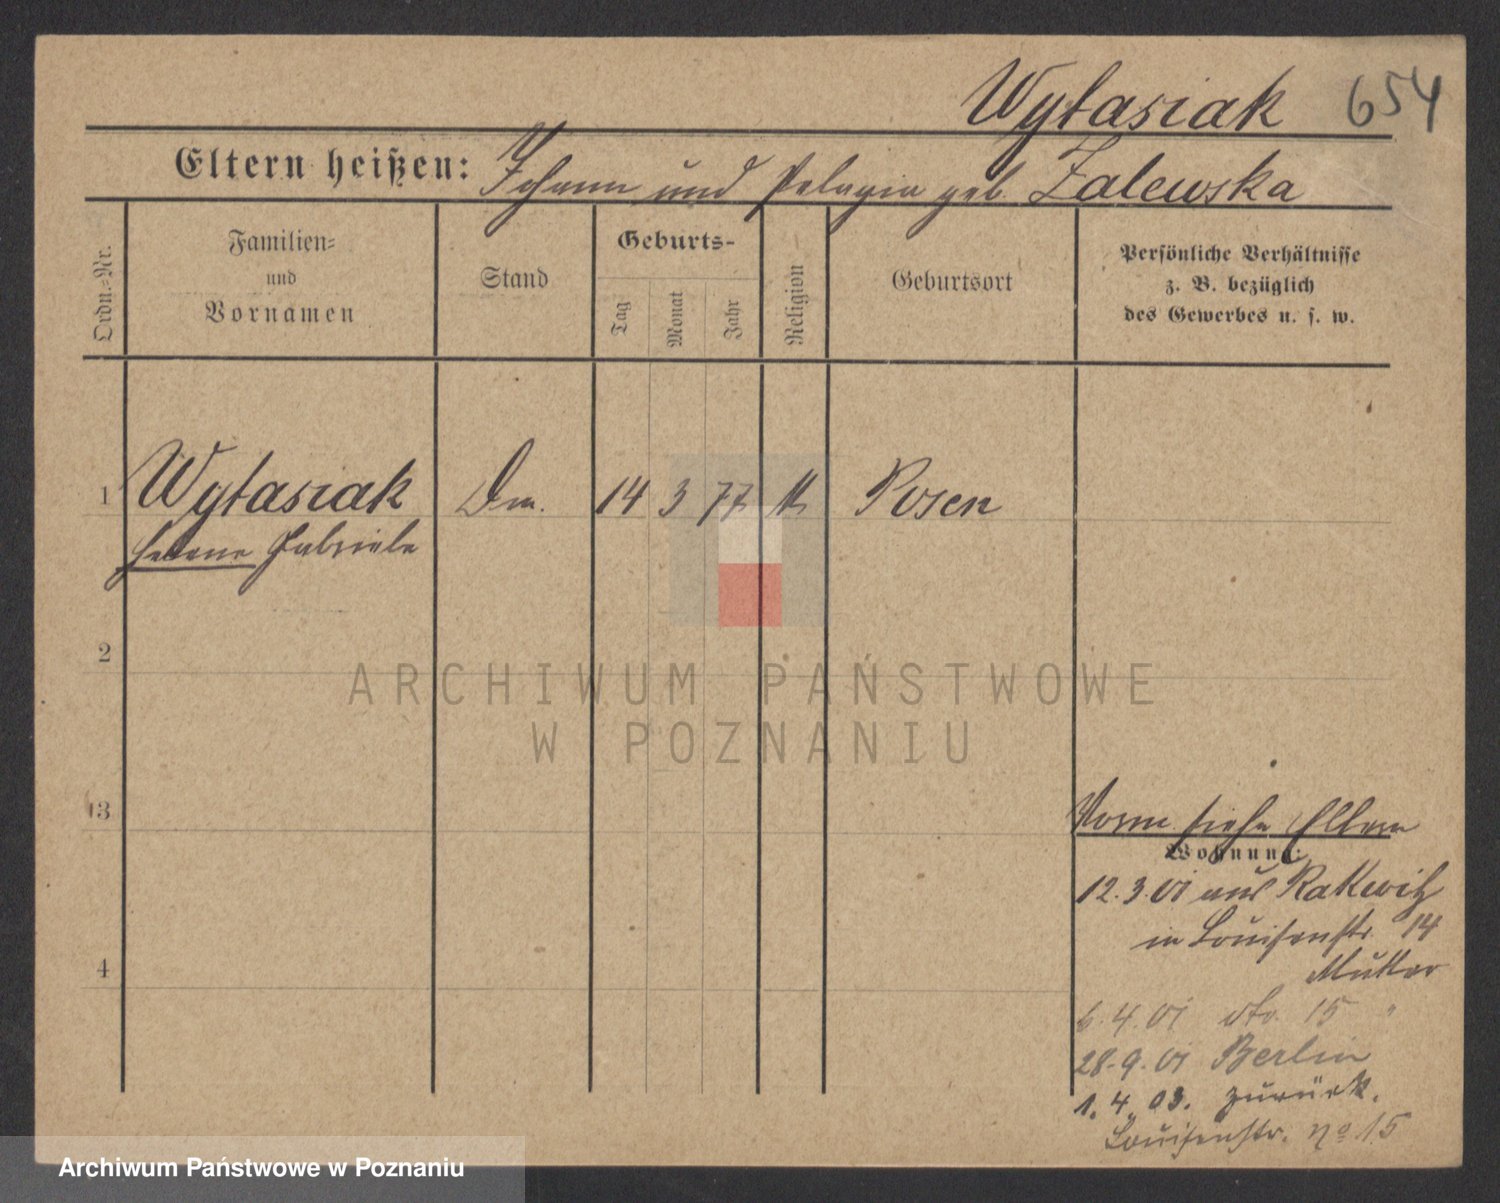 Wytasiak 654
Eltern heißen: Johann und Pelagia geb. Zalewska
Ordn.-Nr.
Familien-
und
Vornamen
Stand
Geburts-
Tag
Monat
Jahr
Religion
Geburtsort
Persönliche Verhältnisse
z. B. bezüglich
des Gewerbes u. s. w.
1 Wytasiak 14 3 77 Posen
Helene Gabriele
2
ARCHIWUM PAŃSTWOWE
W POZNANIU
3
Vorm siehe Eltern
Wohnung:
12.3.01 aus Rakwitz
in Louisenstr. 14
Mutter
4
6.4.01 dto. 15 "
28.9.01 Berlin
1.4.03. zurück.
Louisenstr. No 15
Archiwum Państwowe w Poznaniu